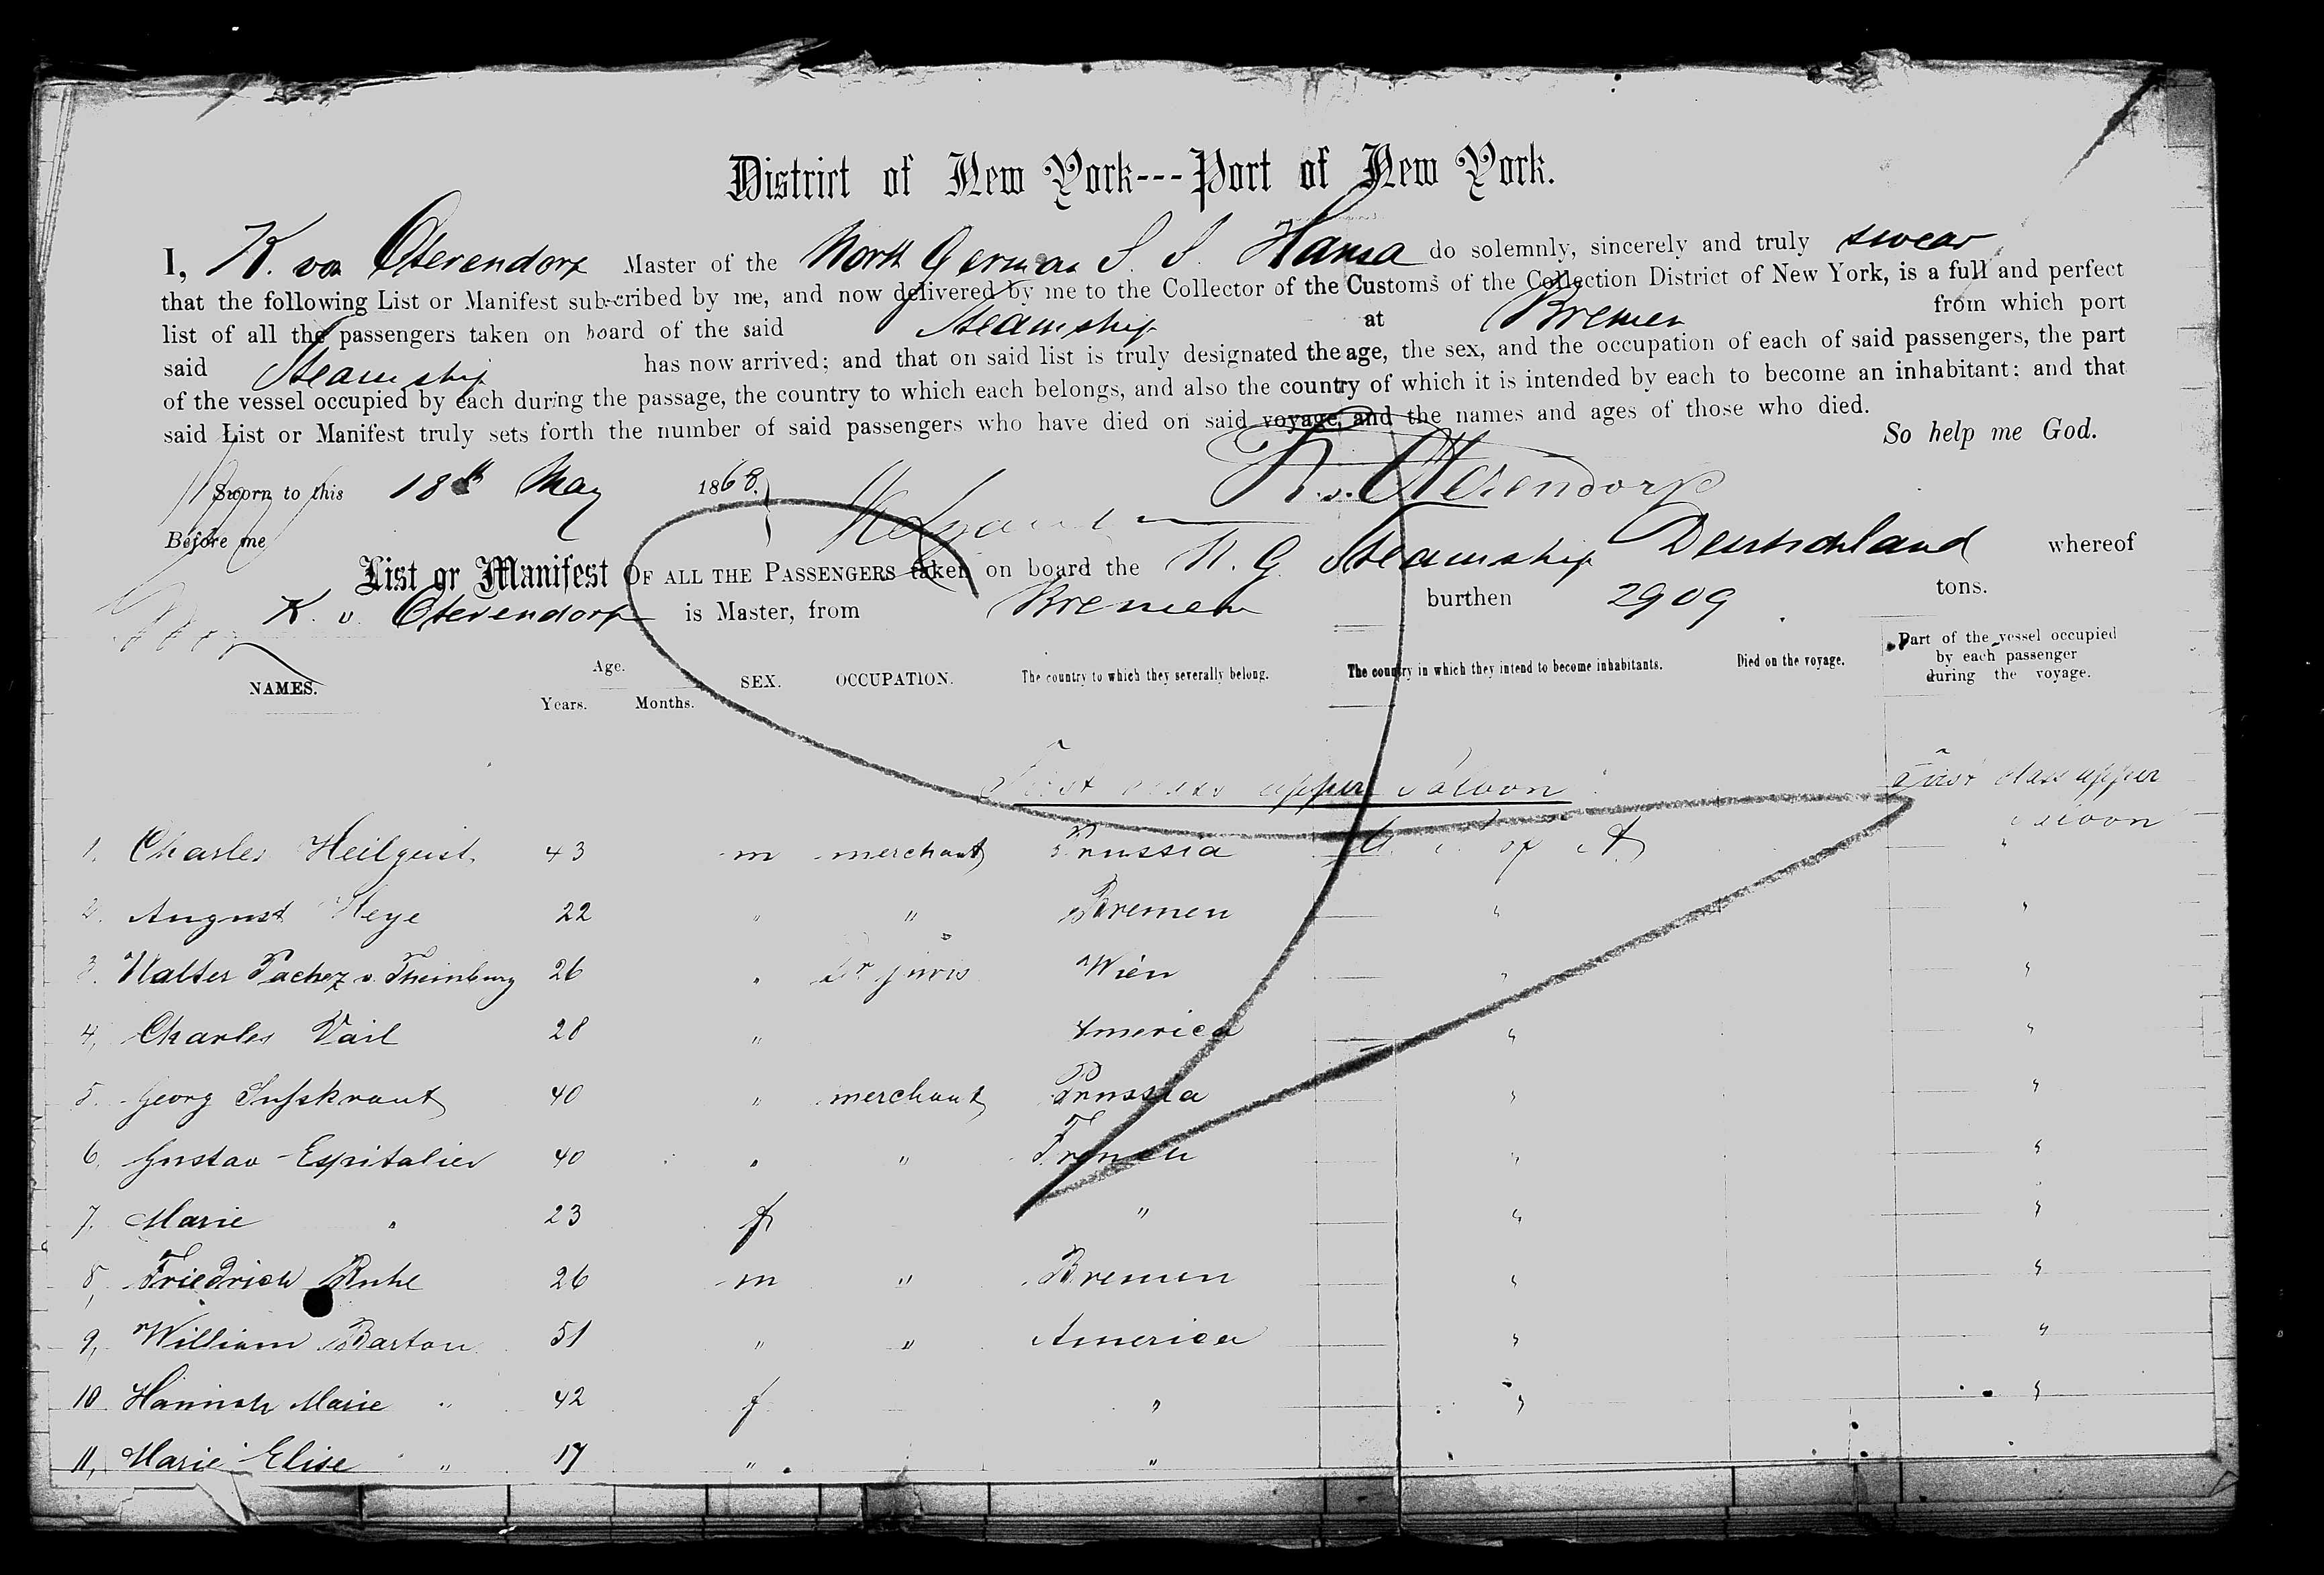 District of New York---Port of New York.
I, K. von Oterendorp Master of the North German S. S. Hansa do solemnly, sincerely and truly swear
that the following List or Manifest subscribed by me, and now delivered by me to the Collector of the Customs of the Collection District of New York, is a full and perfect
list of all the passengers taken on board of the said Steamship at Bremen from which port
said Steamship has now arrived; and that on said list is truly designated the age, the sex, and the occupation of each of said passengers, the part
of the vessel occupied by each during the passage, the country to which each belongs, and also the country of which it is intended by each to become an inhabitant; and that
said List or Manifest truly sets forth the number of said passengers who have died on said voyage, and the names and ages of those who died.
So help me God.
Sworn to this 18th May 1868. K. v. Oterendorp
Before me
List or Manifest OF ALL THE PASSENGERS taken on board the N. G. Steamship Deutschland whereof
K. v. Oterendorp is Master, from Bremen burthen 2909 tons.
NAMES. Age. Years. Months. SEX. OCCUPATION. The country to which they severally belong. The country in which they intend to become inhabitants. Died on the voyage. Part of the vessel occupied by each passenger during the voyage.
First class upper Saloon First class upper Saloon
1. Charles Heilgeist 43 m merchant Prussia U. S. of A. "
2. August Heye 22 " " Bremen " "
3. Walter v. Theinburg 26 " Dr juris Wien " "
4, Charles Vail 28 " America " "
5. Georg Sufskraut 40 " merchant Prussia " "
6, Gustav Espitalier 40 " " French " "
7. Marie " 23 f " " "
8, Friedrich Ruhe 26 m " Bremen " "
9, William Barton 51 " " America " "
10 Hannah Marie " 42 f " " "
11, Marie Elise " 17 " "